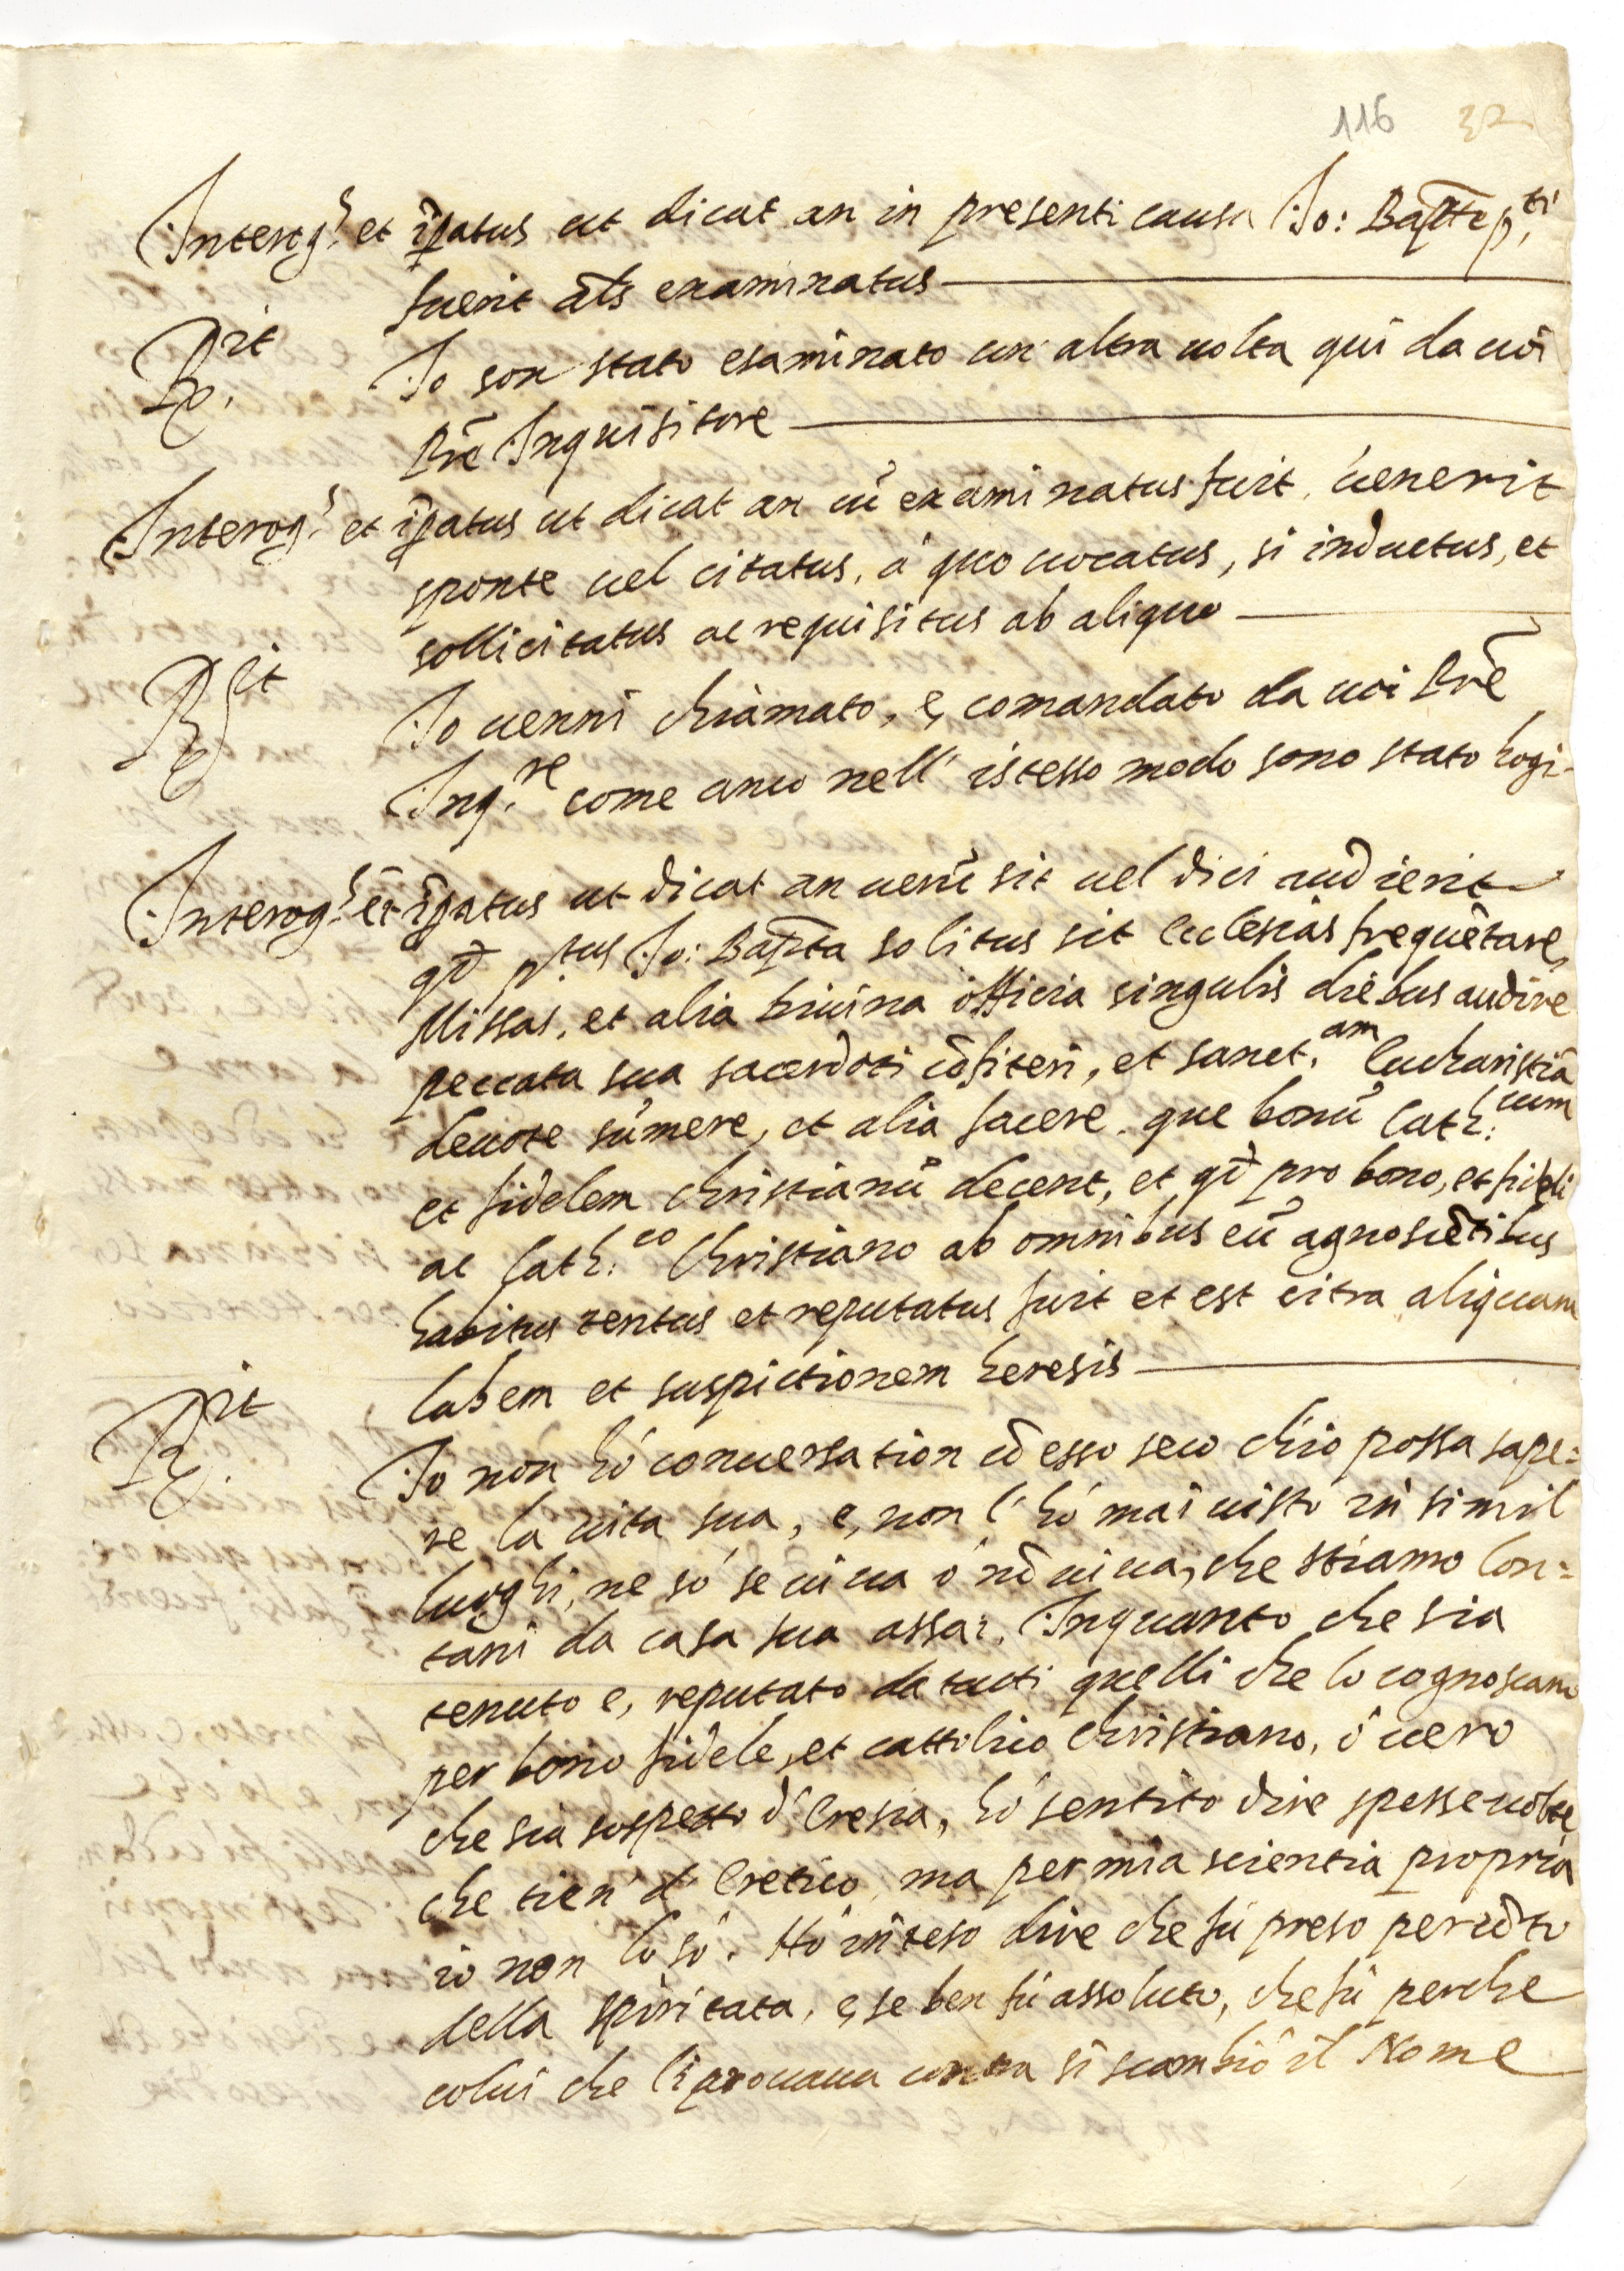 116 32
Interog.s et īpatus ut dicat an in presenti causa Jo: Baptē p.ti
fuerit al's examinatus
R.it Io son stato esaminato un' altra uolta qui da uoi
Prē Inquisitore
Interog.s et īpatus ut dicat an cū examinatus fuit, uenerit
sponte uel citatus, à quo uocatus, si inductus, et
sollicitatus ac requisitus ab aliquo
R.it Io uenni chiamato, e, comandato da uoi Prē
Inq.re come anco nell' istesso modo sono stato hogi-
Interog.s et īpatus ut dicat an uerū sit uel dici audierit
qđ p.tus Jo: Bapta solitus sit Ecclesias frequētare,
Missas, et alia diuina officia singulis diebus audire
peccata sua sacerdoti cōfiteri, et sanct.am Eucharistiā
deuote sumere, et alia facere que bonū Cath:cum
et fidelem christianū decent, et qđ pro bono, et fideli
ac Cath:co Christiano ab omnibus eū agnoscētibus
habitus tentus et reputatus fuit et est citra aliquam
labem et suspictionem heresis
R.it Io non hò conuersation cō esso seco ch'io possa sape=
re la uita sua, e, non l' hò mai uisto in simil
luoghi, ne sò se ci ua ò nō ci ua, che stiamo lon=
tani da casa sua assai. Inquanto che sia
tenuto e, reputato da tutti quelli che lo cognoscano
per bono fidele, et cattolico christiano, ò uero
che sia sospetto d' Eresia, hò sentito dire spesse uolte
che tien d' Eretico, ma per mia scientia propria
io non lo sò. Hò inteso dire che fù preso per cōto
della spiritata, e, se ben fù assoluto, che fù perche
colui che li prouaua contra si scambiò il Nome